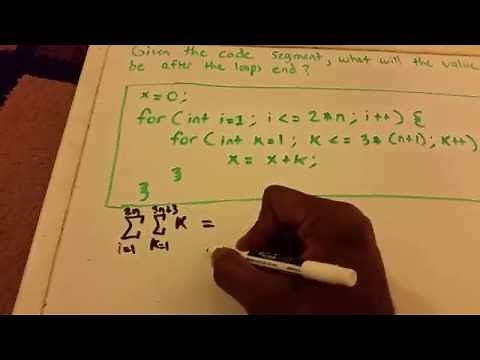 Given the code segment, what will the value
be after the loops end?
x=0;
for(int i=1; i<=2*n; i++) {
for(int k=1; k<=3*(n+1); k++)
x = x+k;
}
}
2n 3n+3
∑ ∑ k =
i=1 k=1